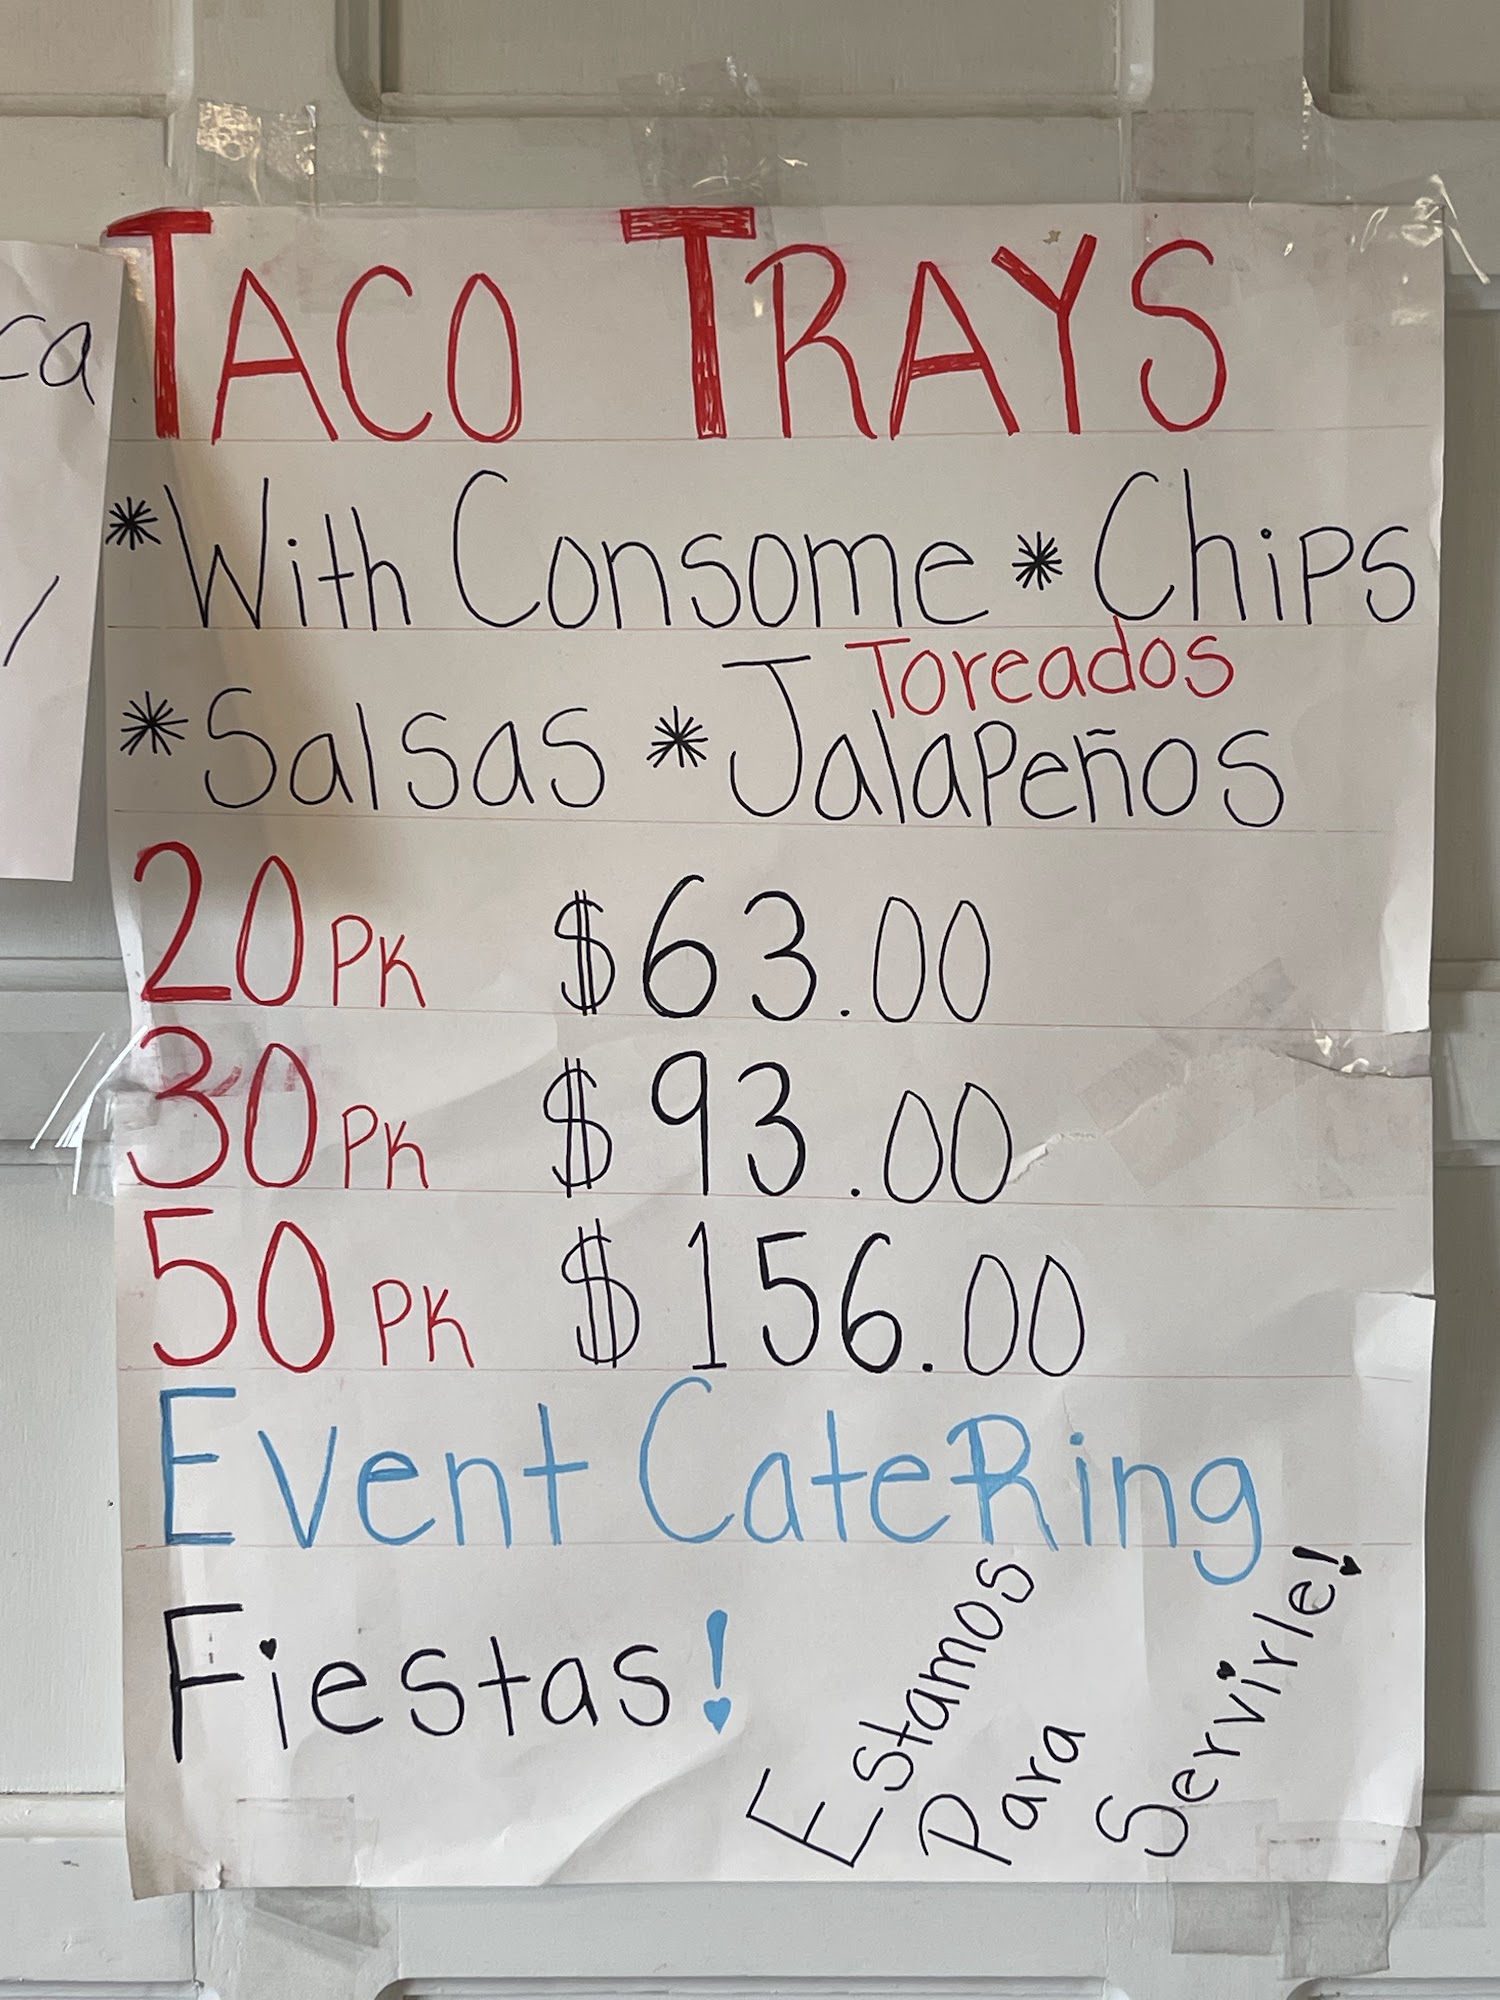 TACO TRAYS
*With Consome * Chips
Toreados
*Salsas * Jalapeños
20 PK $63.00
30 PK $93.00
50 PK $156.00
Event Catering
Fiestas!
Estamos
Para
Servirle!
ca